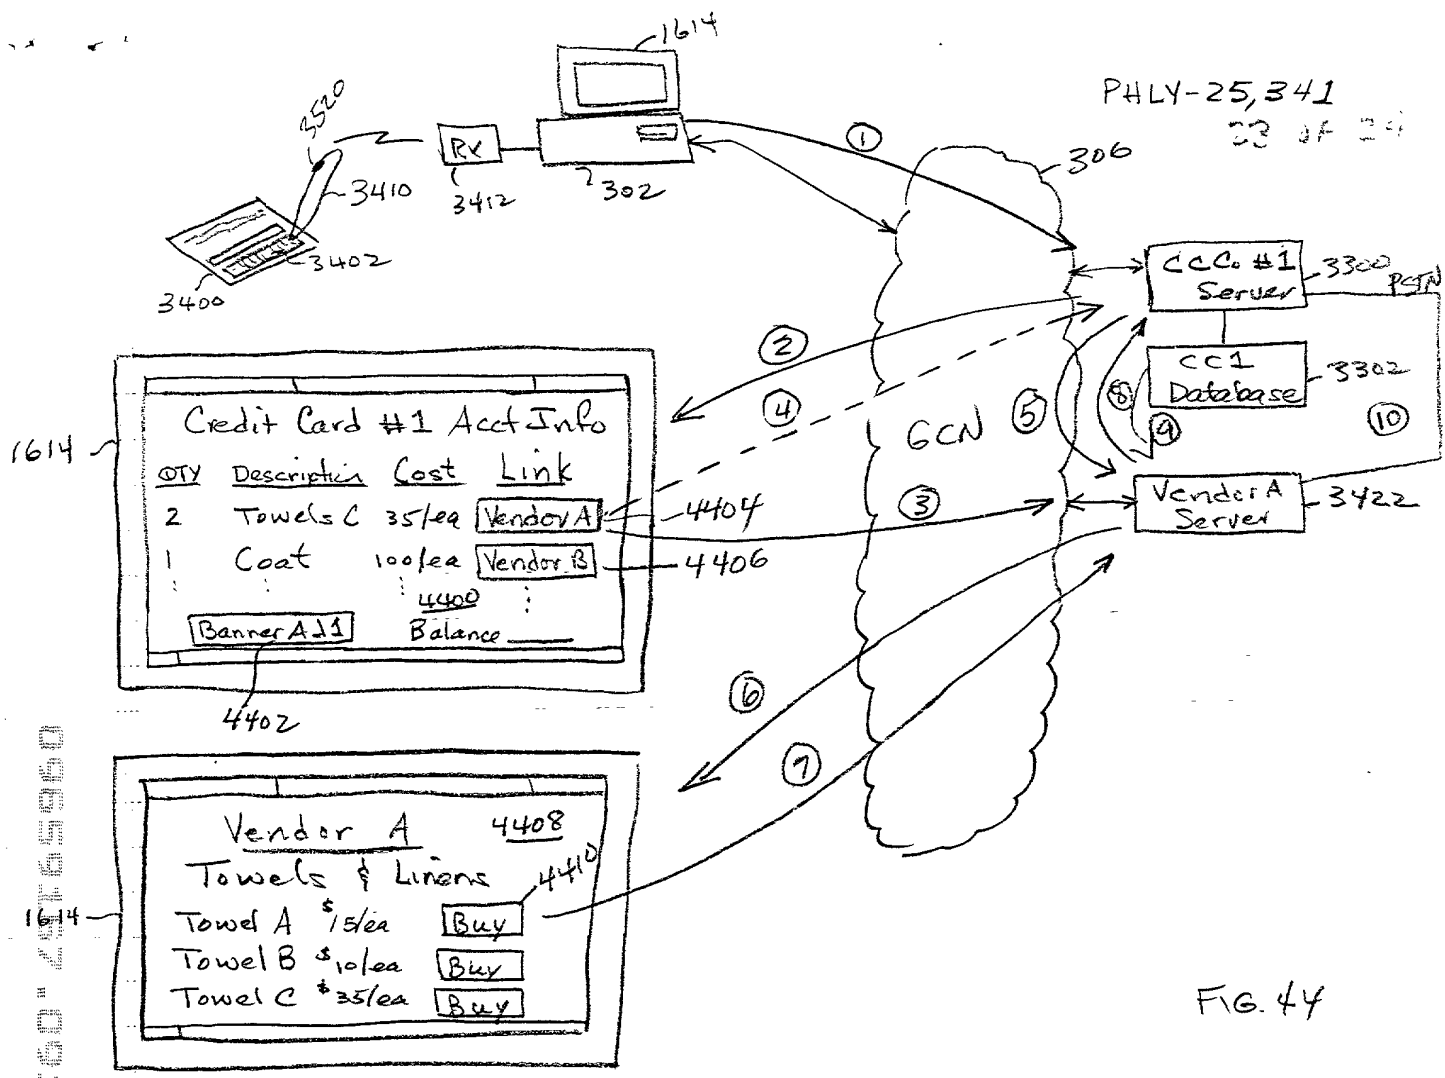 1614
PHLY-25,341
23 of 24
3520
RX
3410
3412
302
3402
3400
①
306
CCCo #1
Server
3300
PSTN
CC1
Database
3302
②
④
⑤
⑧
⑨
⑩
GCN
③
Vendor A
Server
3422
1614
Credit Card #1 Acct Info
QTY Description Cost Link
2 Towels C 35/ea Vendor A
4404
1 Coat 100/ea Vendor B
4406
4400
Banner Ad 1 Balance
4402
⑥
⑦
1614
Vendor A 4408
Towels & Linens
4410
Towel A $15/ea Buy
Towel B $10/ea Buy
Towel C $35/ea Buy
FIG. 44